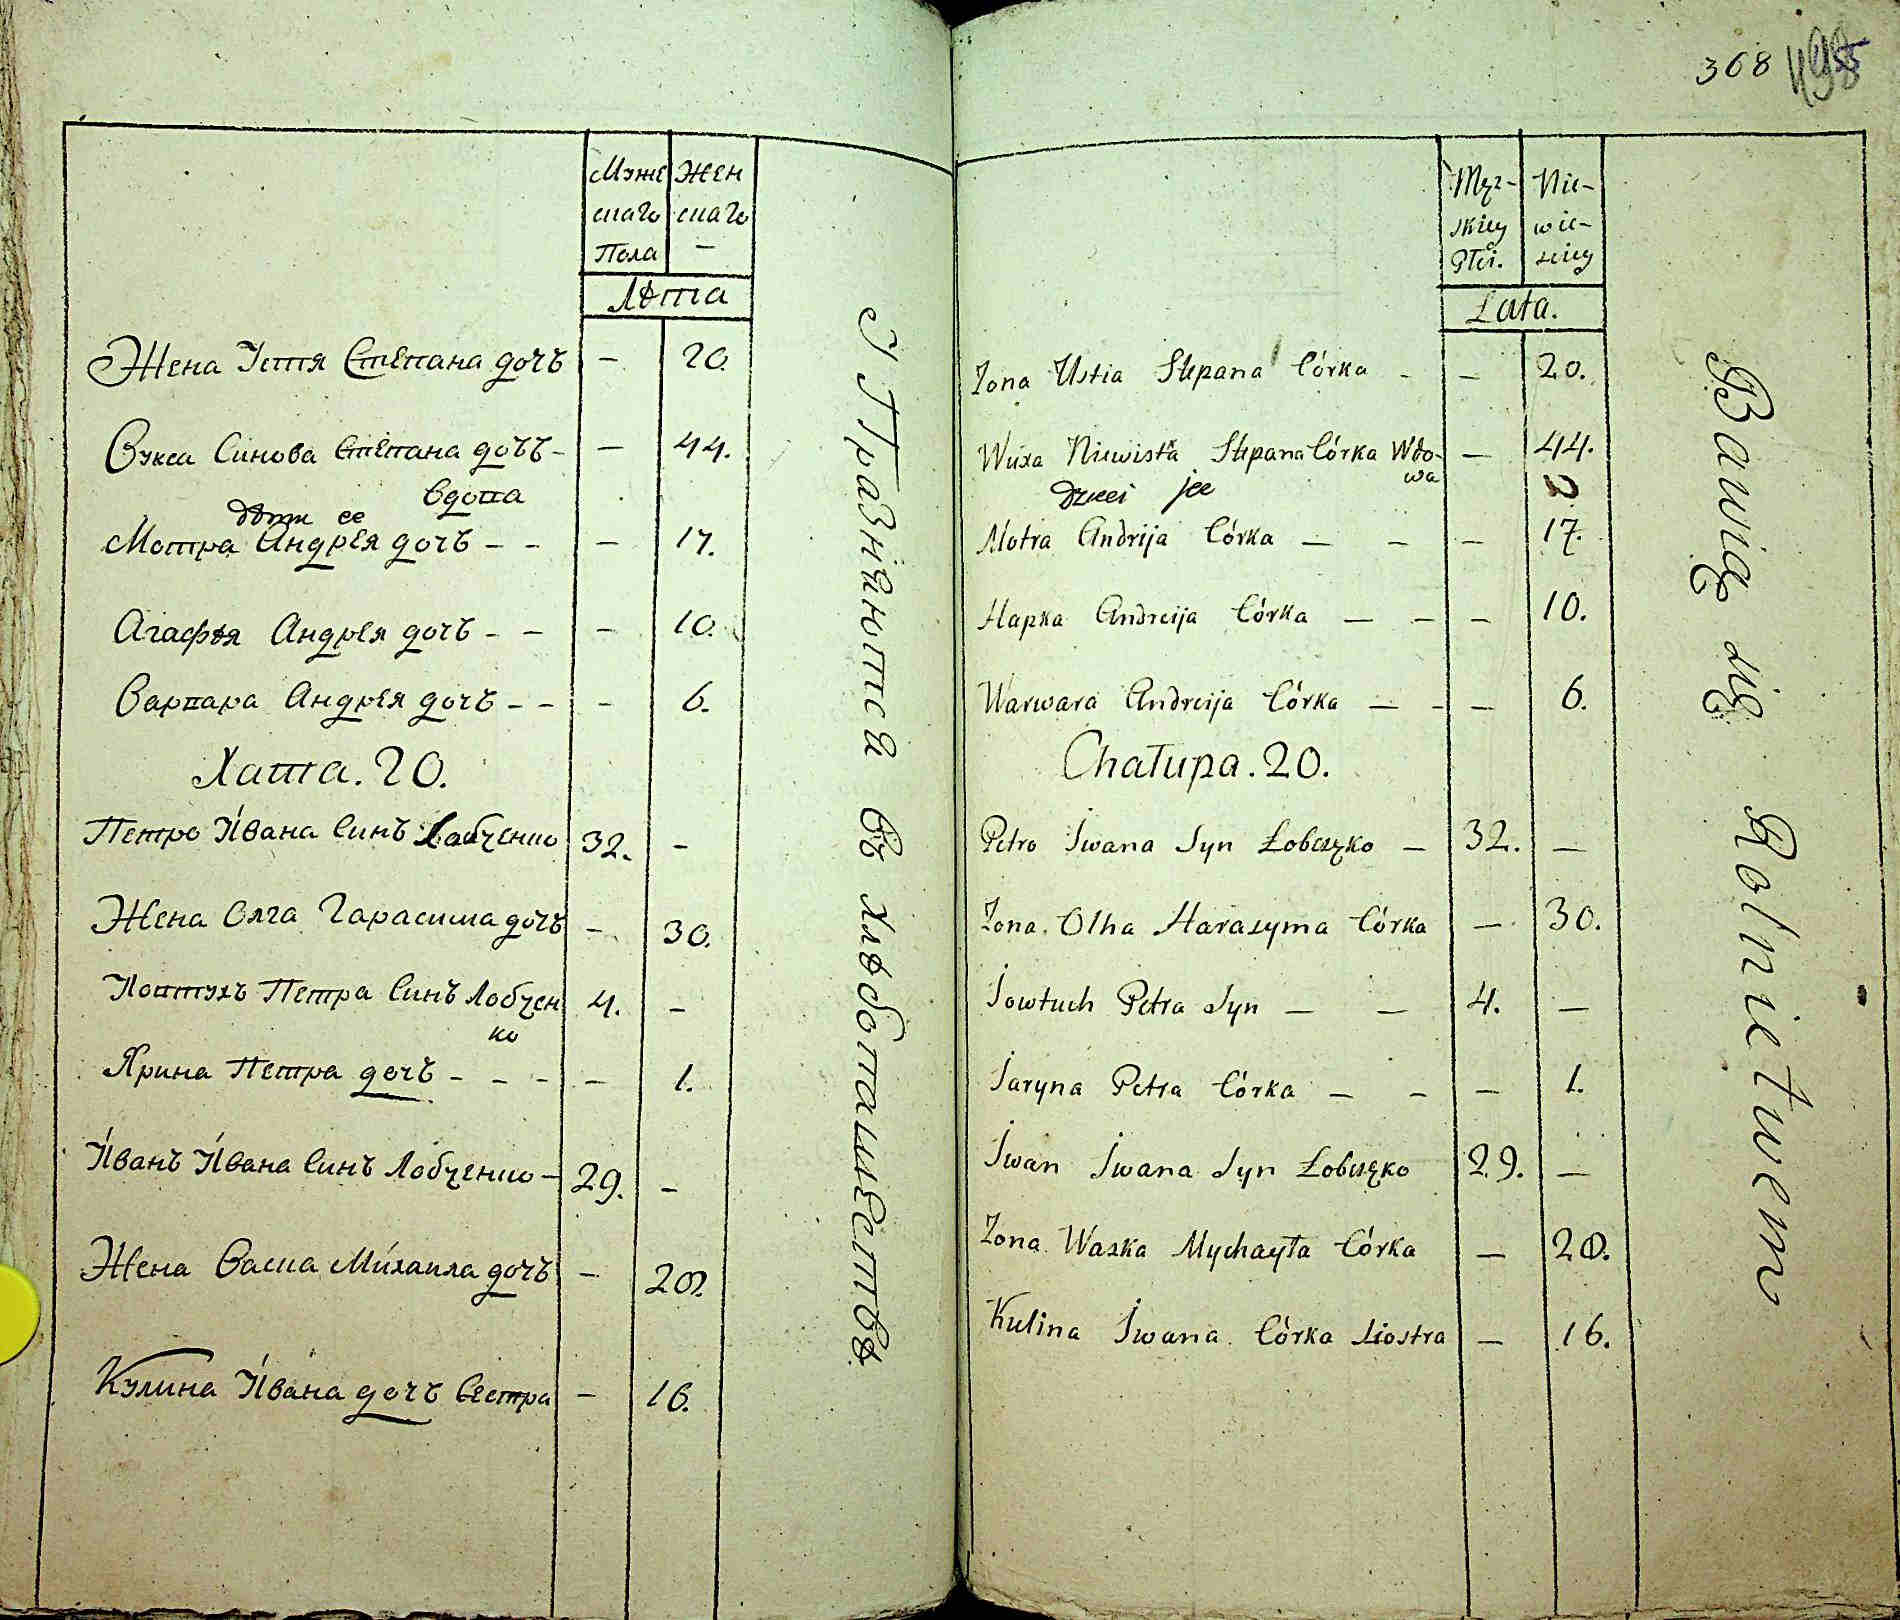 Муже Жен
скаго скаго
Пола –
Лѣта
Жена Устя Степана дочь – 20.
Вукса Синова Степана дочь – – 44.
вдова
дѣти ее
Мотра Андрея дочь – – – 17.
Агафѣя Андрея дочь – – – 10.
Варвара Андрея дочь – – – 6.
Хата. 20.
Петро Ивана Синъ Лобченко 32. –
Жена Олга Гарасима дочь – 30.
Иовтухъ Петра Синъ Лобчен 4. –
ко
Ярина Петра дочь – – – – 1.
Иванъ Ивана Синъ Лобченко – 29. –
Жена Васка Михаила дочь – 20.
Кулина Ивана дочь Сестра – 16.
Упражняются въ хлѣбопашествѣ
308
Męz- Nie-
skiey wie-
Płci. sciey
Lata.
Zona Ustia Stepana Córka – – 20.
Wuxa Niewistka Stepana Córka Wdo- – 44.
wa
dzieci jee
Motra Andrija Córka – – – 17.
Hapka Andreija Córka – – – 10.
Warwara Andreija Córka – – – 6.
Chałupa. 20.
Petro Iwana Syn Łobczęko – 32. –
Zona Olha Harasyma Córka – 30.
Jowtuch Petra Syn – – 4. –
Jaryna Petra Córka – – – 1.
Iwan Iwana Syn Łobczęko 29. –
Zona Waska Mychayła Córka – 20.
Kulina Iwana Córka Siostra – 16.
Bawią się Rolnictwem